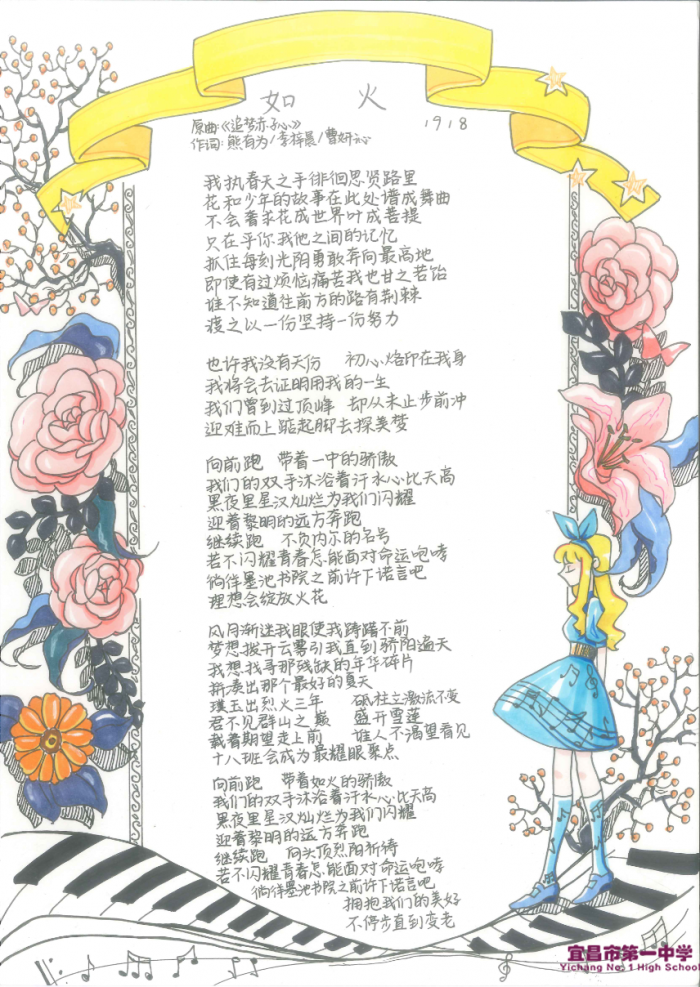 如 火
原曲:《追梦赤子心》 1918
作词:熊有为/李梓晨/曹妍沁
我执春天之手徘徊思贤路里
花和少年的故事在此处谱成舞曲
不会着求花成世界叶成菩提
只在乎你我他之间的记忆
抓住每刻光阴勇敢奔向最高地
即使有过烦恼痛苦我也甘之若饴
谁不知道往前方的路有荆棘
度之以一份坚持一份努力
也许我没有天份 初心烙印在我身
我将会去证明用我的一生
我们曾到过顶峰 却从未止步前冲
迎难而上踮起脚去探美梦
向前跑 带着一中的骄傲
我们的双手沐浴着汗水心比天高
黑夜里星汉灿烂为我们闪耀
迎着黎明的远方奔跑
继续跑 不负内尔的名号
若不闪耀青春怎能面对命运咆哮
徜徉墨池书院之前许下诺言吧
理想会绽放火花
风月渐迷我眼使我踌躇不前
梦想拨开云雾引我直到骄阳遍天
我想找寻那残缺的年华碎片
拼凑出那个最好的夏天
璞玉出烈火三年 砥柱立激流不变
君不见群山之巅 盛开雪莲
载着期望走上前 谁人不渴望看见
十八班会成为最耀眼聚点
向前跑 带着如火的骄傲
我们的双手沐浴着汗水心比天高
黑夜里星汉灿烂为我们闪耀
迎着黎明的远方奔跑
继续跑 向头顶烈阳祈祷
若不闪耀青春怎能面对命运咆哮
徜徉墨池书院之前许下诺言吧
拥抱我们的美好
不停步直到变老
宜昌市第一中学
Yichang No. 1 High School